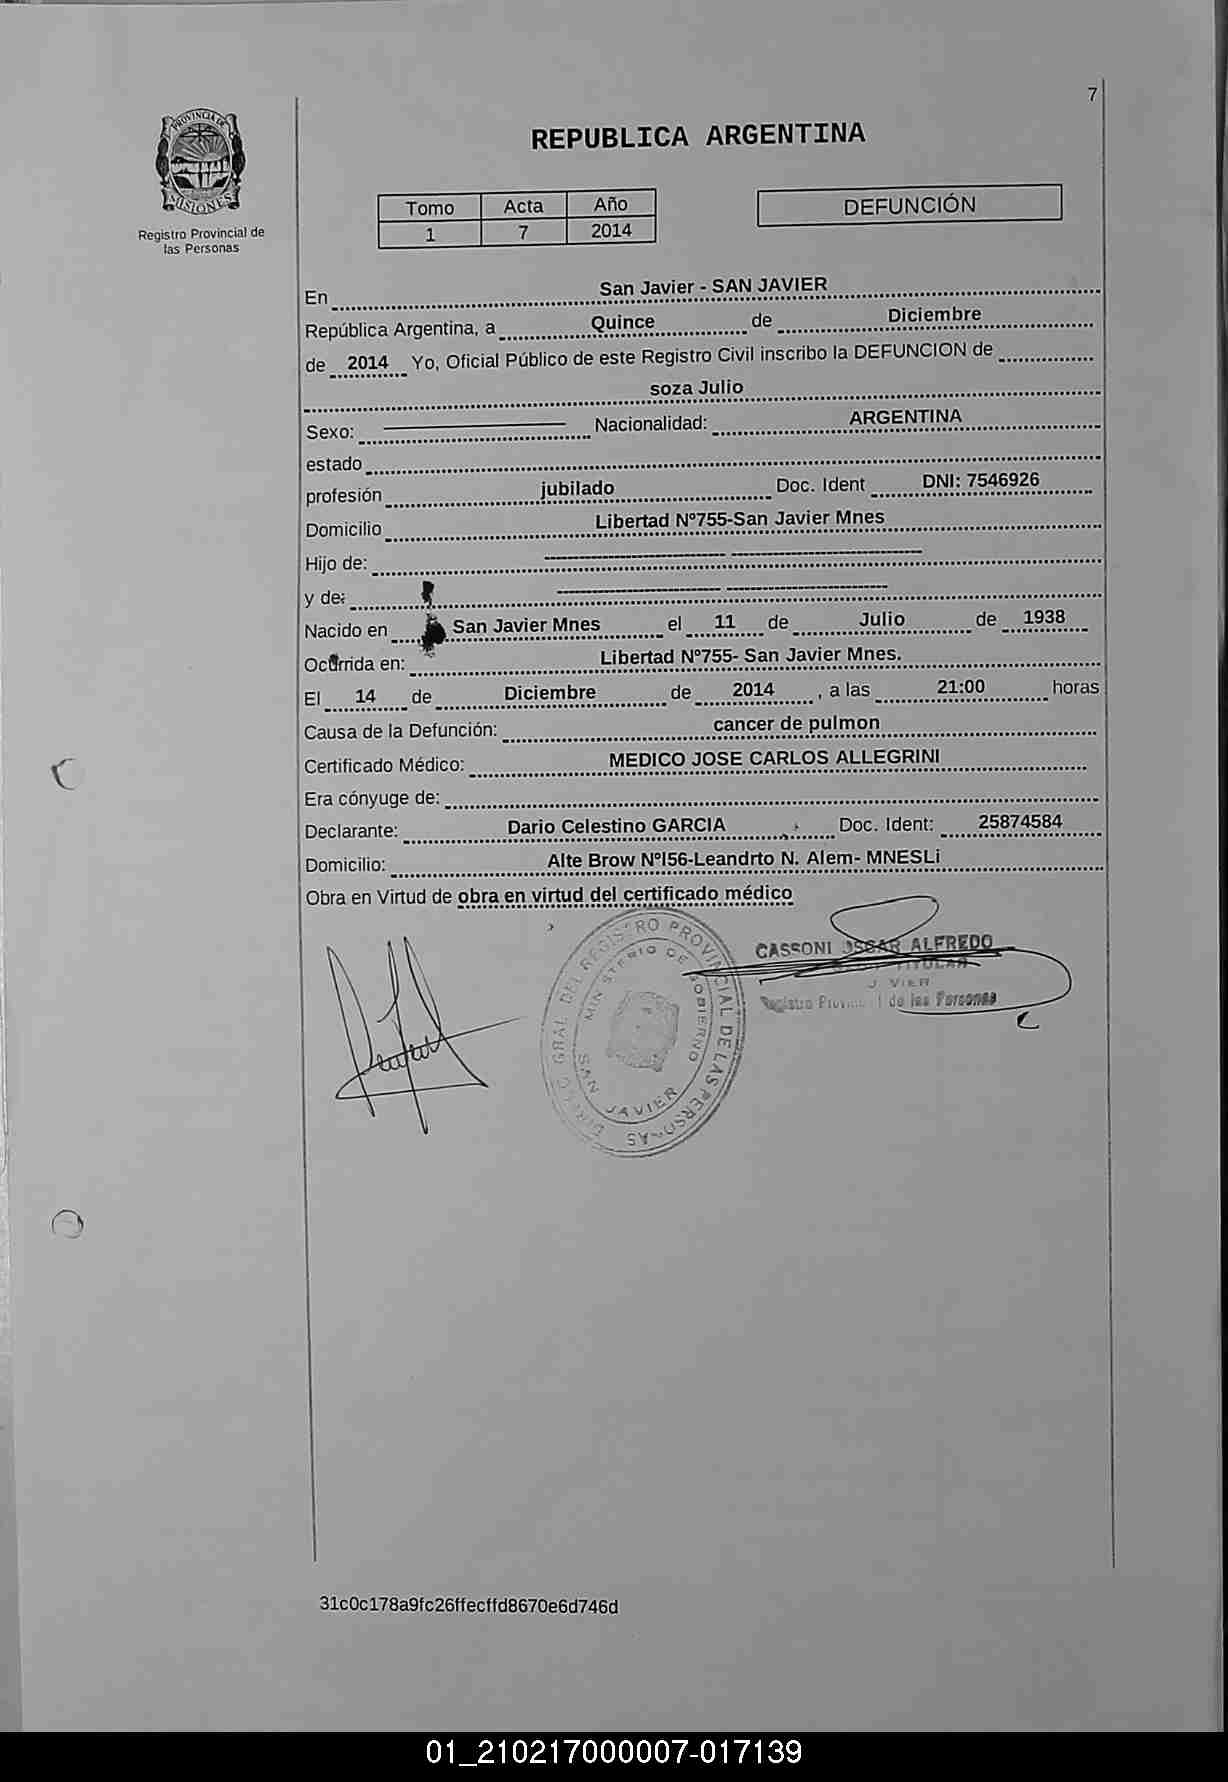 7
PROVINCIA DE
MISIONES
Registro Provincial de
las Personas
REPUBLICA ARGENTINA
Tomo Acta Año
1 7 2014
DEFUNCIÓN
En San Javier - SAN JAVIER
República Argentina, a Quince de Diciembre
de 2014 Yo, Oficial Público de este Registro Civil inscribo la DEFUNCION de
soza Julio
Sexo: Nacionalidad: ARGENTINA
estado
profesión jubilado Doc. Ident DNI: 7546926
Domicilio Libertad Nº755-San Javier Mnes
Hijo de:
y de:
Nacido en San Javier Mnes el 11 de Julio de 1938
Ocurrida en: Libertad Nº755- San Javier Mnes.
El 14 de Diciembre de 2014 , a las 21:00 horas
Causa de la Defunción: cancer de pulmon
Certificado Médico: MEDICO JOSE CARLOS ALLEGRINI
Era cónyuge de:
Declarante: Dario Celestino GARCIA Doc. Ident: 25874584
Domicilio: Alte Brow NºI56-Leandrto N. Alem- MNESLi
Obra en Virtud de obra en virtud del certificado médico
GRAL DEL REGISTRO PROVINCIAL DE LAS PERSONAS
MINISTERIO DE GOBIERNO
SAN JAVIER
CASSONI OSCAR ALFREDO
TITULAR
Registro de las Personas
31c0c178a9fc26ffecffd8670e6d746d
01_210217000007-017139